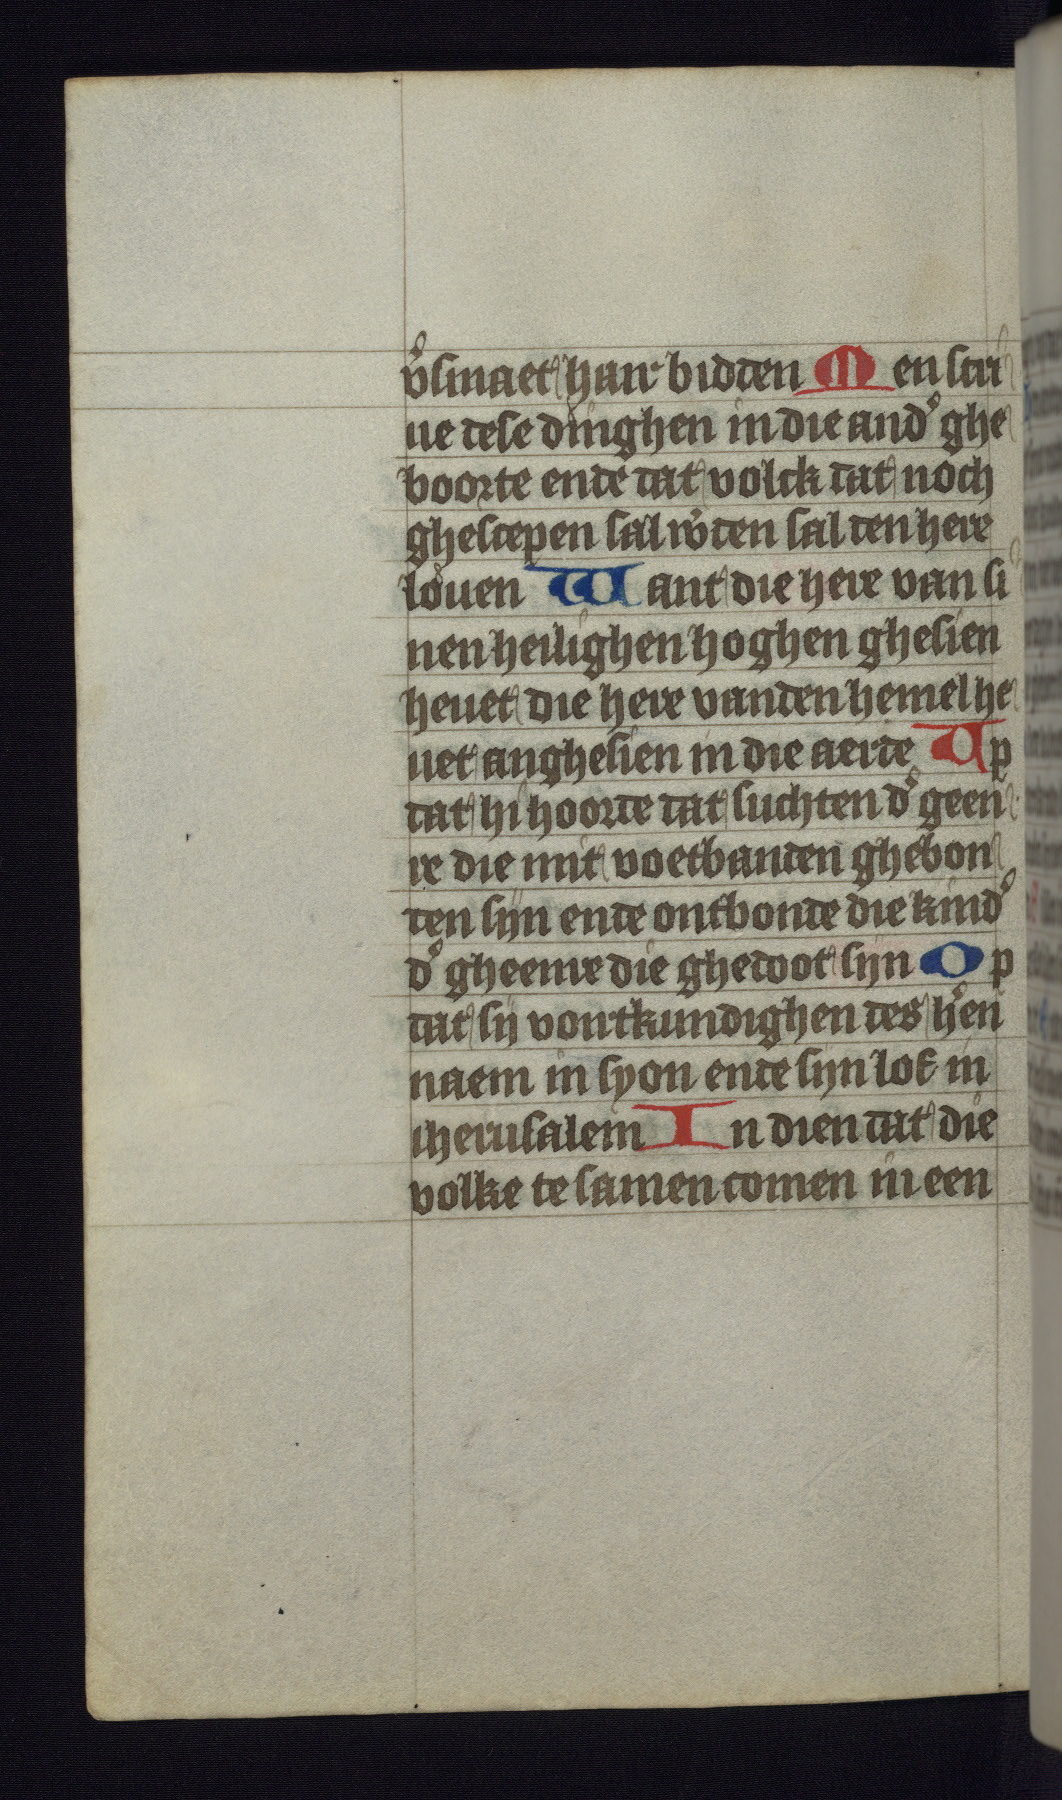 v̾smaet haır bidden Men scri
ue dese dinghen in die and̾ ghe
boorte ende dat volck dat noch
ghescepen sal w̾den sal den here
louen Want die here van si
nen heilighen hoghen ghesien
heuet die here vanden hemel he
uet anghesien in die aerde Up
dat hi hoorde dat suchten d̾ geen
re die mit voetbanden ghebon
den sijn ende ontbonde die kind̾
d̾ gheenre die ghedoot sijn Op
dat sij vontkundighen des h̾en
naem in syon ende sijn lof in
iherusalem In dien dat die
volke te samen comen in een